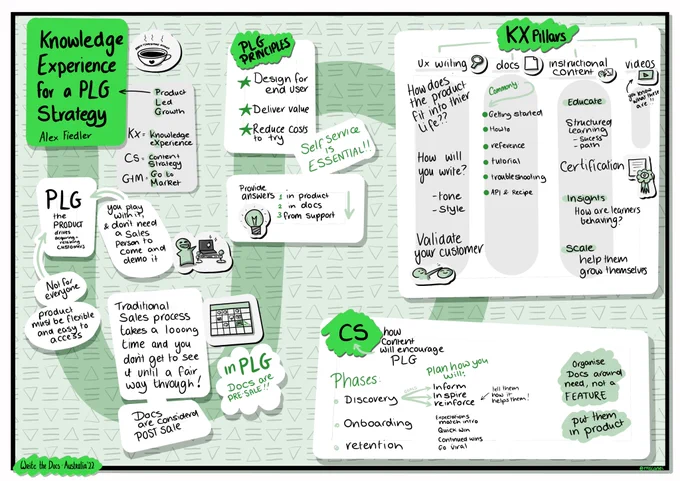 Knowledge
Experience
for a PLG
Strategy
Alex Fiedler
Product
Led
Growth
Kx = Knowledge
eXperience
CS = Content
Strategy
GTM = Go to
Market
PLG
the
PRODUCT
drives
acquiring,
retaining
customers
you play
with it,
& don't need
a Sales
Person to
come and
demo it
Not for
everyone
product
must be flexible
and easy to
access
Traditional
Sales process
takes a looong
time and you
don't get to see
it until a fair
way through!
Docs
are considered
POST SALE
in PLG
Docs are
PRE-SALE!!
PLG
PRINCIPLES
Design for
end user
Deliver value
Reduce costs
to try
Self service
is
ESSENTIAL!!
Provide
answers
1 in product
2 in docs
3 from support
KX Pillars
Ux writing
How does
the product
fit into thier
life??
How will
you write?
-tone
-Style
Validate
your customer
docs
Commonly
Getting started
How to
reference
tutorial
troubleshooting
API & Recipe
instructional
content
Educate
Structured
learning
- Sucess
- path
Certification
Insights
How are learners
behaving?
Scale
help them
grow themselves
videos
you know
what these
are !!
CS
how
Content
will encourage
PLG
Phases:
Discovery
Onboarding
retention
Plan how you
will:
Inform
Inspire
reinforce
tell them
how it
helps them!
Expectations
match intro
Quick win
Continued wins
Go viral
Organise
Docs around
need, not a
FEATURE
put them
in product
Write the Docs Australia '22